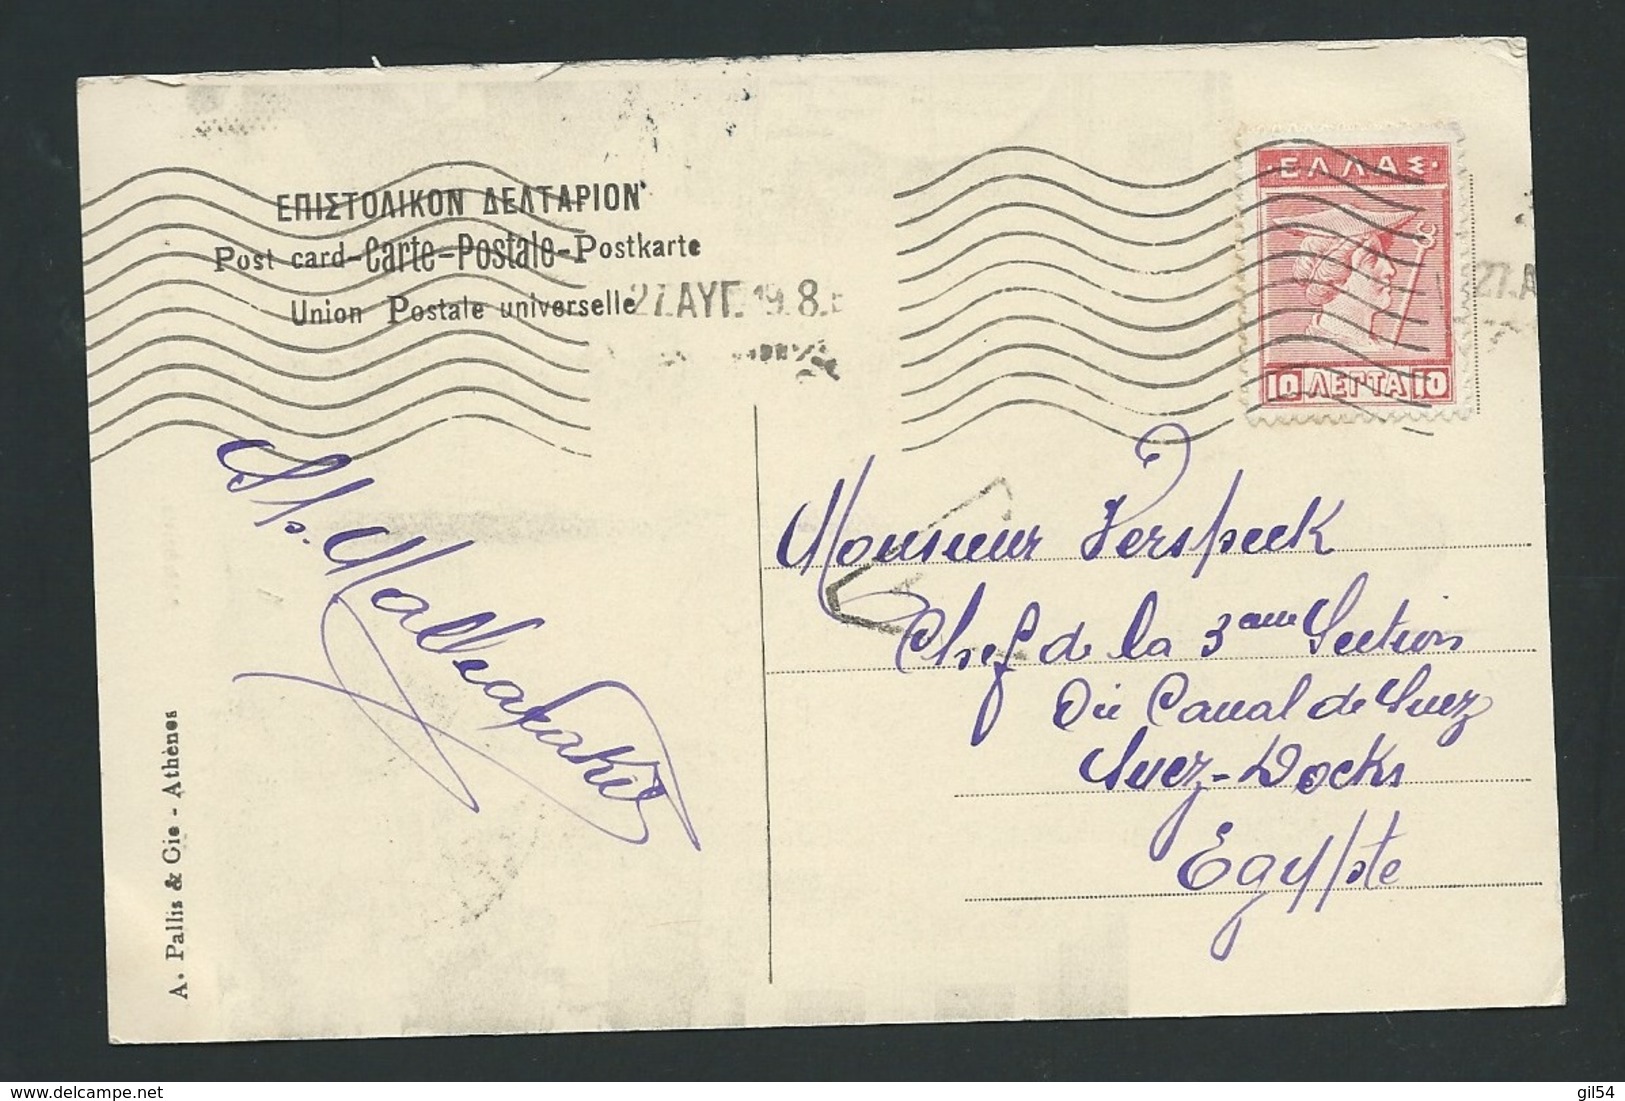 ΕΠΙΣΤΟΛΙΚΟΝ ΔΕΛΤΑΡΙΟΝ
Post card-Carte-Postale-Postkarte
Union Postale universelle
27.ΑΥΓ. 19. 8
·ΕΛΛΑΣ·
10 ΛΕΠΤΑ 10
27.Α
Monsieur Verspeek
Chef de la 3eme Section
Du Canal de Suez
Suez-Docks
Egypte
A. Pallis & Cie - Athènes
delcampe.net
gil54